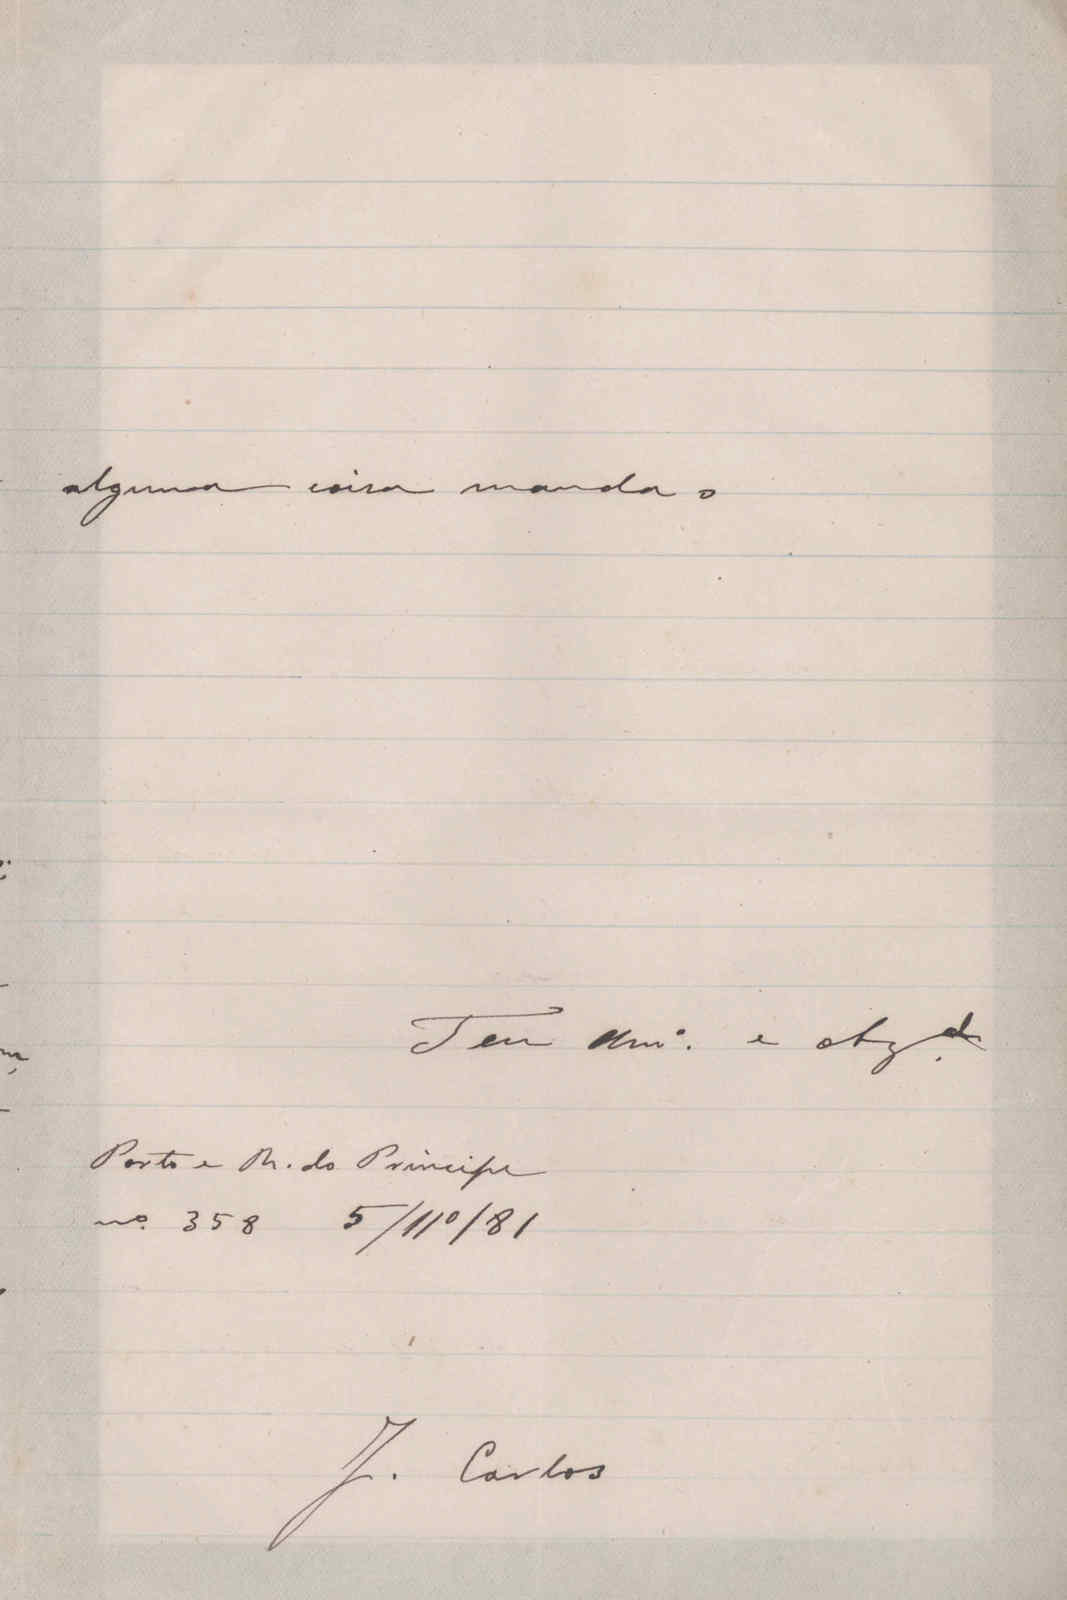 alguma coisa manda o
Teu Am.º e obg.do
Porto e R. do Principe
nº. 358 5/11º/81
J. Carlos